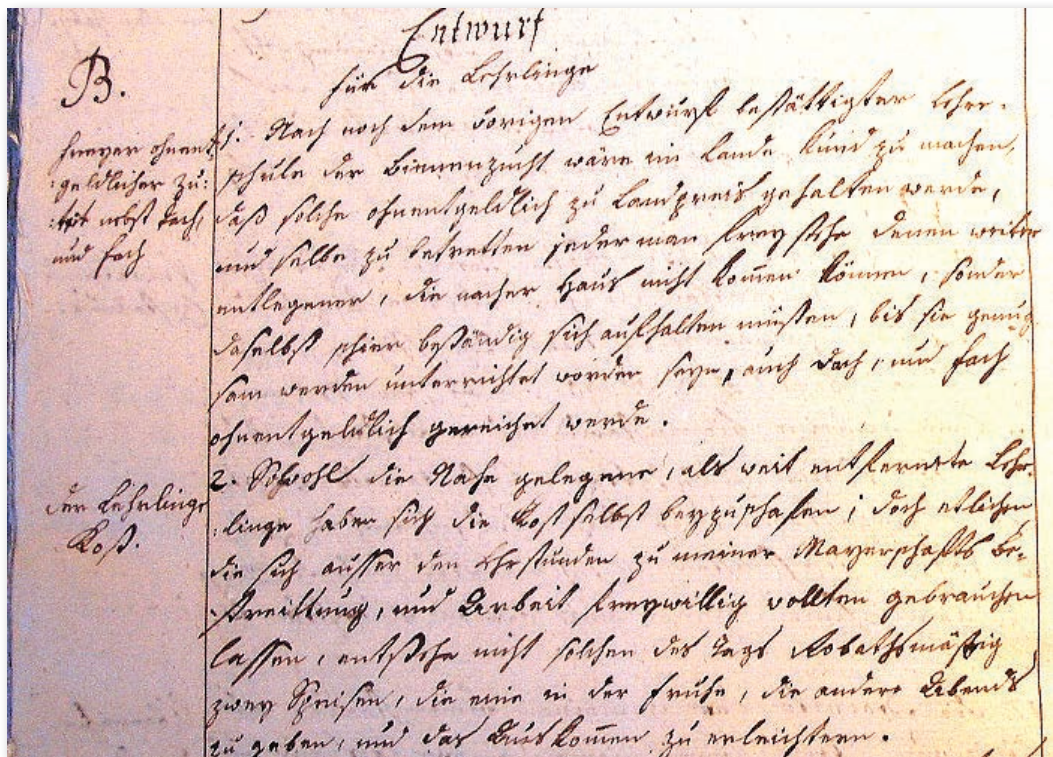 Entwurf
für die Lehrlinge
B.
freyer ohnent
:geldlicher Zu:
:tritt nebst Dach,
und Fach
1. Nach noch dem vorigen Entwurf bestättigter Lehr-
schule der Bienenzucht wäre im Lande kund zu machen,
daß solche ohnentgeldlich zu Landpreis gehalten werde,
und selbe zu betretten jederman frey stehe denen weiter
entlegener, die nacher Haus nicht kom̄en können, sonder
daselbst schier beständig sich aufhalten müsten, bis sie genug
sam werden unterrichtet worden seyn, auch Dach, und Fach
ohnentgeldlich gereichet werde.
der Lehrlinge
Kost.
2. Sowohl die Nahe gelegene, als weit entfernete Lehr
:linge haben sich die Kost selbst beyzuschafen, doch etlichen
die sich ausser den Lehrstunden zu meiner Mayerschafts Be-
streittung, und Arbeit freywillig wollten gebrauchen
lassen, entstehe nicht solchen des Tags Robathsmässig
zwey Speisen, die eine in der Fruhe, die andere Abends
zu geben, und das Auskom̄en zu erleichtern.